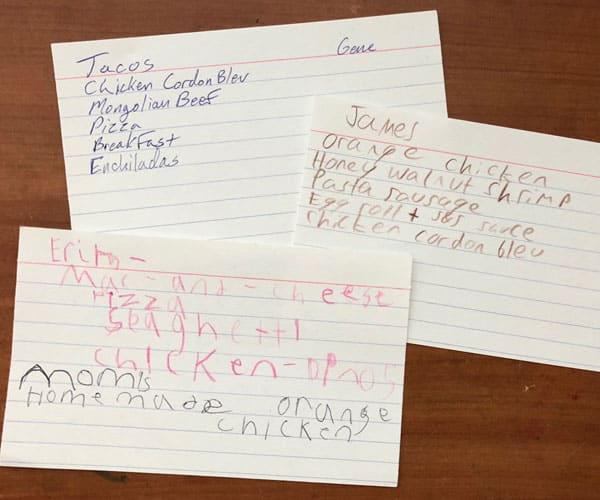 Gene
Tacos
Chicken Cordon Bleu
Mongolian Beef
Pizza
BreakFast
Enchiladas
James
orange chicken
Honey walnut shrimp
Pasta sausage
Egg roll + sauce
chicken cordon bleu
Mac-and-cheese
Pizza
Spaghetti
chicken-
Mom's
Homemade orange
chicken